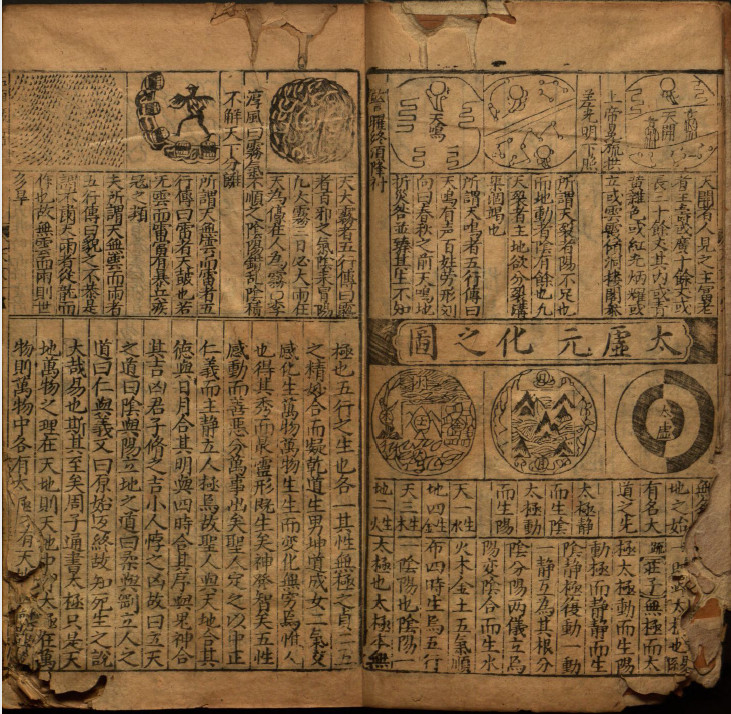 天開
上帝
差光明下照
天鳴
天開有人見之主富老
者主壽或廣十餘丈或
長二十餘丈其内或青
黃雜色或紅光炳耀或
洞樓閣
所謂天裂者陽不足也
而地動者陰有餘也九
天裂者主地欲分裂
竭也
所謂天鳴者五行傳曰
天鳴有聲百姓勞形刘
向曰春秋之前天鳴地
坼災咎並臻其生不知
太虛元化之圖
太虛
地之始
有名大
道之先
太極靜
而生陰
太極動
而生陽
天一生水
地四生金
天三生木
地二生火
莊子無極而太
極太極動而生陽
動極而靜靜而生
陰靜極復動一動
一靜互為其根分
陰分陽兩儀立焉
陽變陰合而生水
火木金土五氣順
布四時生焉五行
一陰陽也陰陽一
太極也太極本無
淳風曰霧氣不順之陰陽錯亂陰積
不解天下分離
天大霧者五行傳曰霧
者百邪之氣陰來冒陽
九大霧三日必大雨在
天為濛在人為霧
所謂天無雲而雷者五
行傳曰雷者天鼓也若
无雲而雷當有暴兵
冠之類
夫所謂天無雲而雨者
五行傳曰貌之不恭是
謂不肅天雨者從乾而
作也故無雲而雨則世
多旱
極也五行之生也各一其性無極之真二五
之精妙合而凝乾道生男坤道成女二氣交
感化生萬物萬物生生而變化無窮焉惟人
也得其秀而最靈形既生矣神發智矣五性
感動而善惡分萬事出矣聖人定之以中正
仁義而主靜立人極焉故聖人與天地合其
德與日月合其明與四時合其序與鬼神合
其吉凶君子脩之吉小人悖之凶故曰立天
之道曰陰與陽立地之道曰柔與剛立人之
道曰仁與義又曰原始反終故知死生之說
大哉易也斯其至矣周子通書太極只是天
地萬物之理在天地則天地中有太極在萬
物則萬物中各有太極未有天地